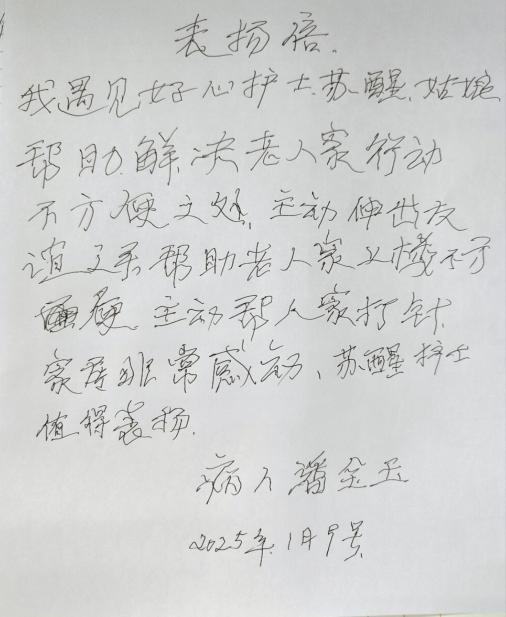 表扬信.
我遇见好心护士.苏醒.姑娘
帮助.解决老人家行动
不方便之处.主动伸出友
谊之手帮助老人家上楼不方
便.主动帮人家打针.
家属非常感动、苏醒护士
值得表扬.
病人潘金玉
2025年.1月9号.